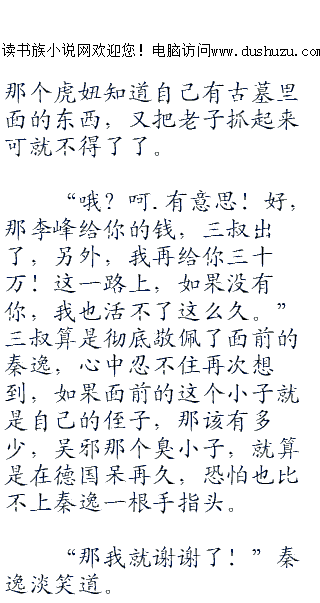 读书族小说网欢迎您！电脑访问www.dushuzu.com
那个虎妞知道自己有古墓里
面的东西，又把老子抓起来
可就不得了了。
“哦？呵.有意思！好，
那李峰给你的钱，三叔出
了，另外，我再给你三十
万！这一路上，如果没有
你，我也活不了这么久。”
三叔算是彻底敬佩了面前的
秦逸，心中忍不住再次想
到，如果面前的这个小子就
是自己的侄子，那该有多
少，吴邪那个臭小子，就算
是在德国呆再久，恐怕也比
不上秦逸一根手指头。
“那我就谢谢了！”秦
逸淡笑道。